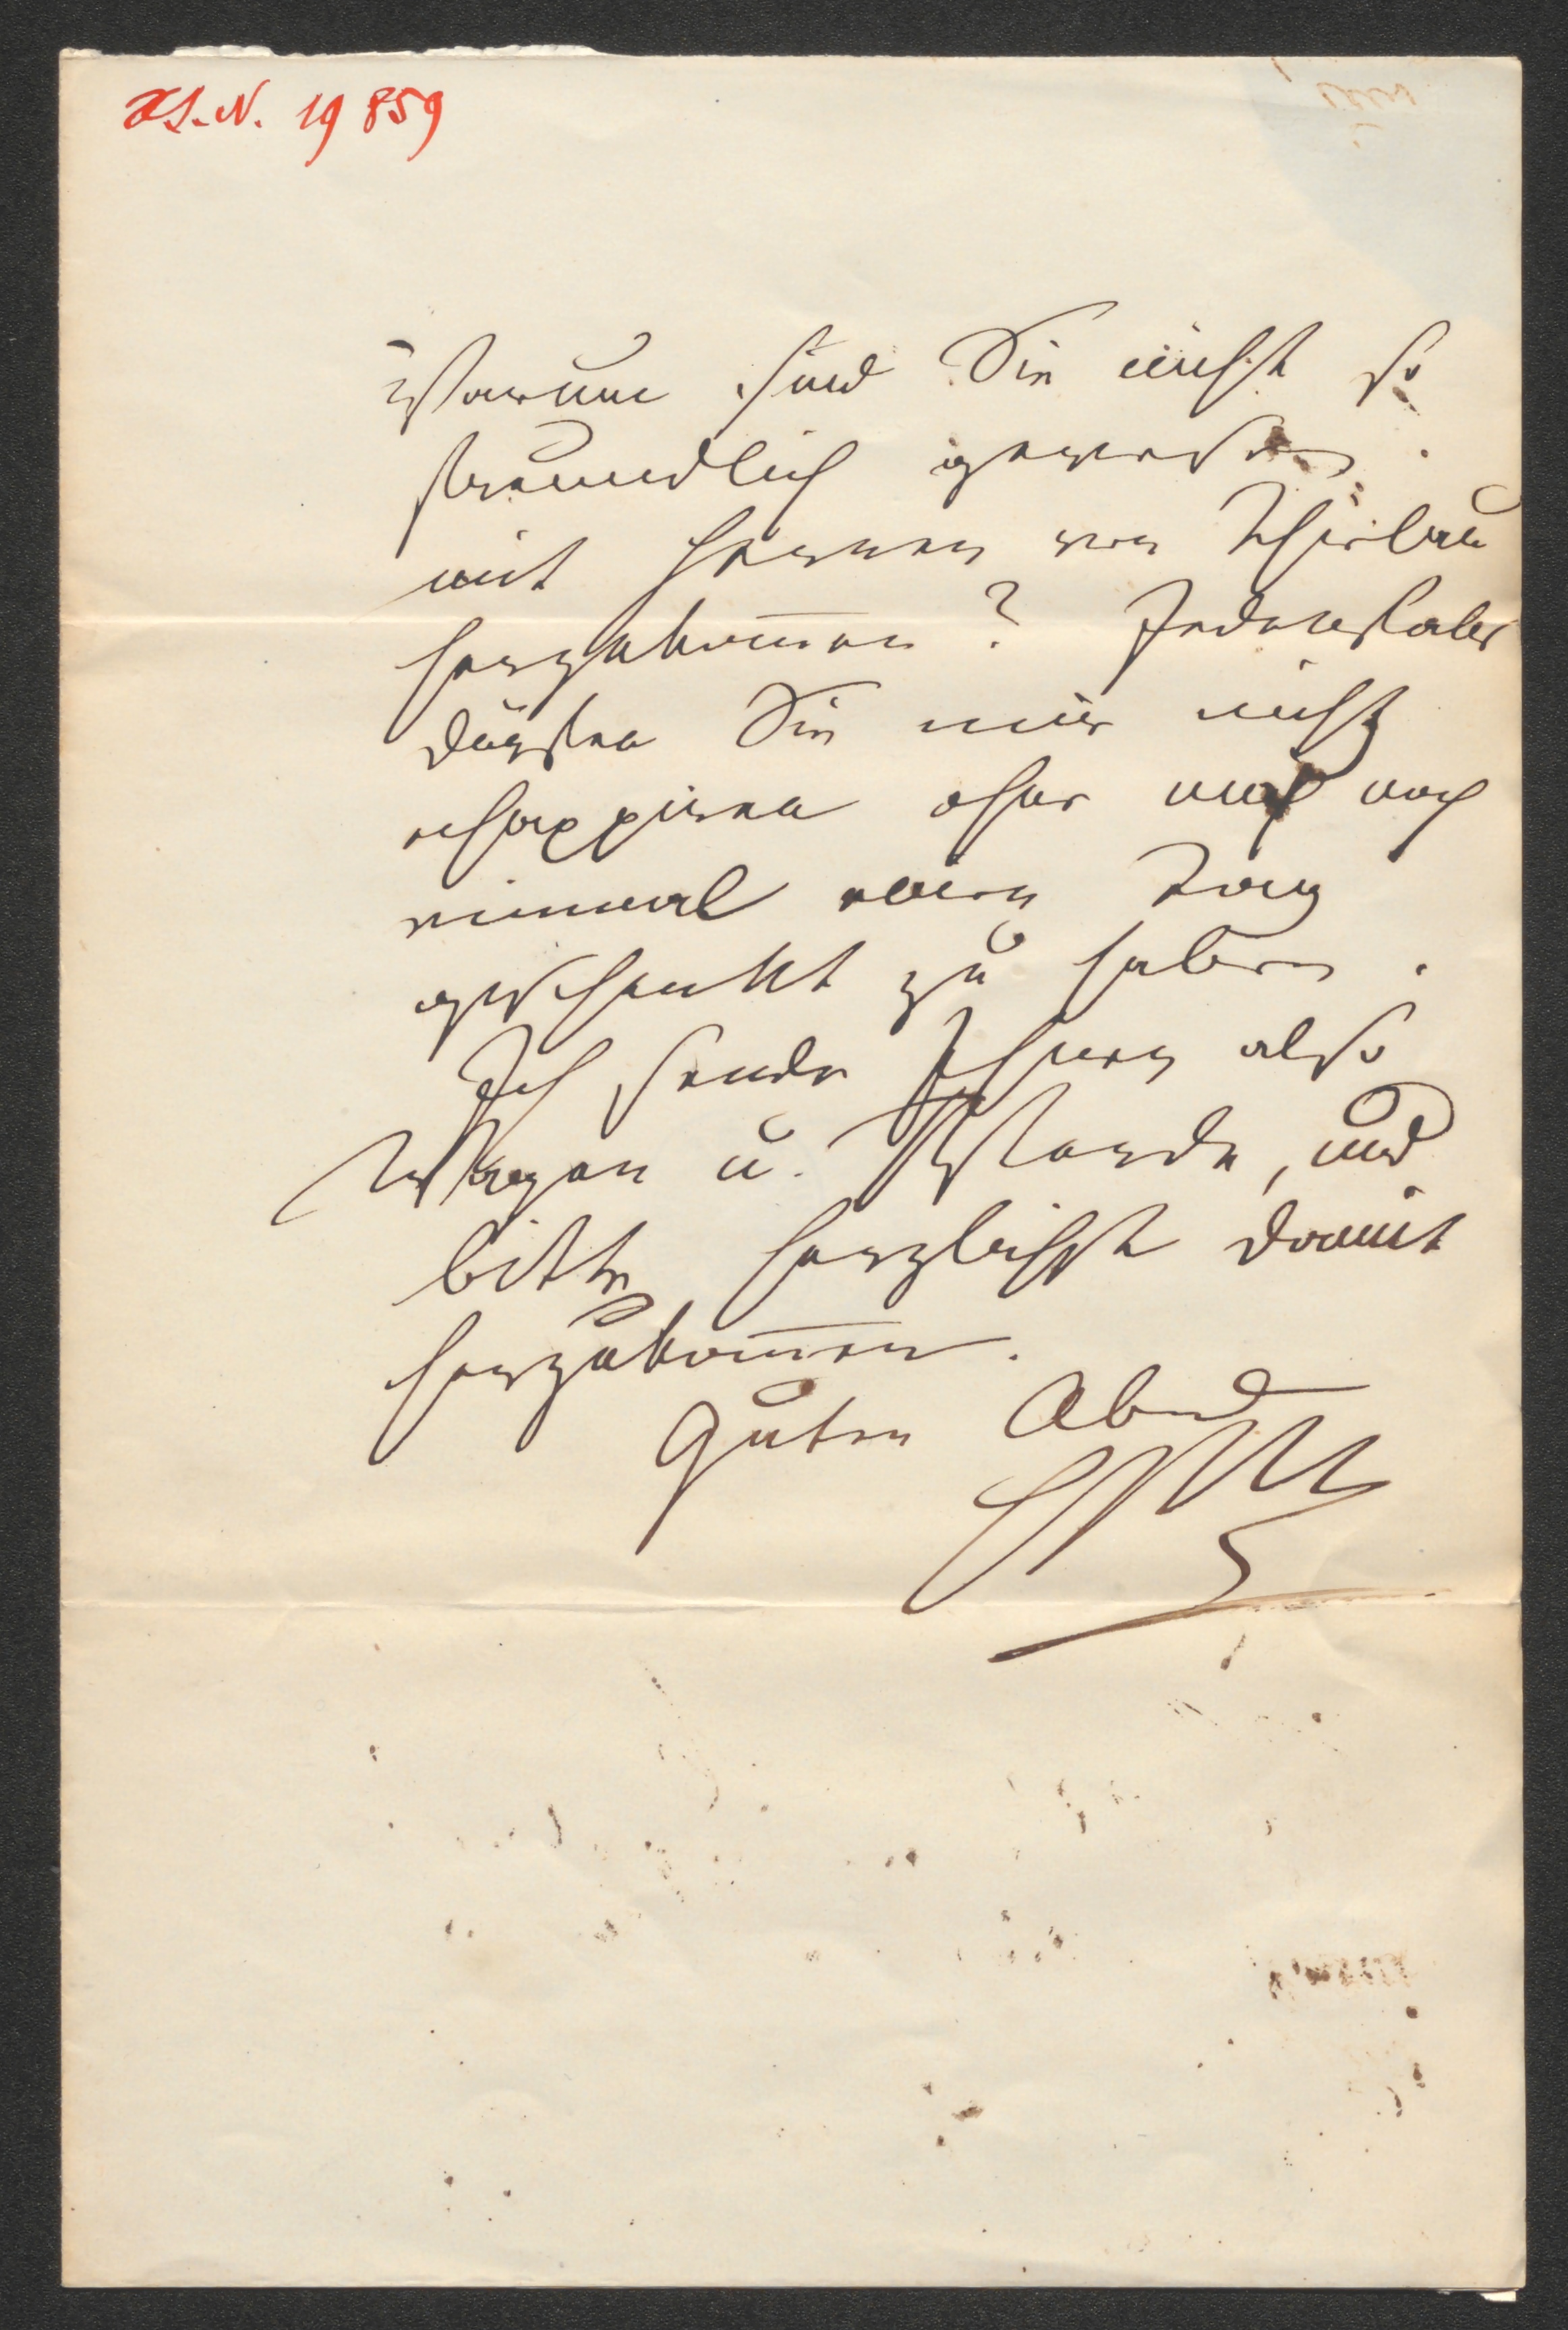 H.I.N. 19859
Warum sind Sie nicht so
freundlich gewesen
mit Herren von
herzukom̅en? Jedenfalls
dürfen Sie mir nicht
echappiren ohne mich noch
einmal einen Tag
geschenkt zu haben.
Ich sende Ihnen also
Wagen u. Pferde, und
bitte herzlichst damit
herzukom̅en.
Guten Abend